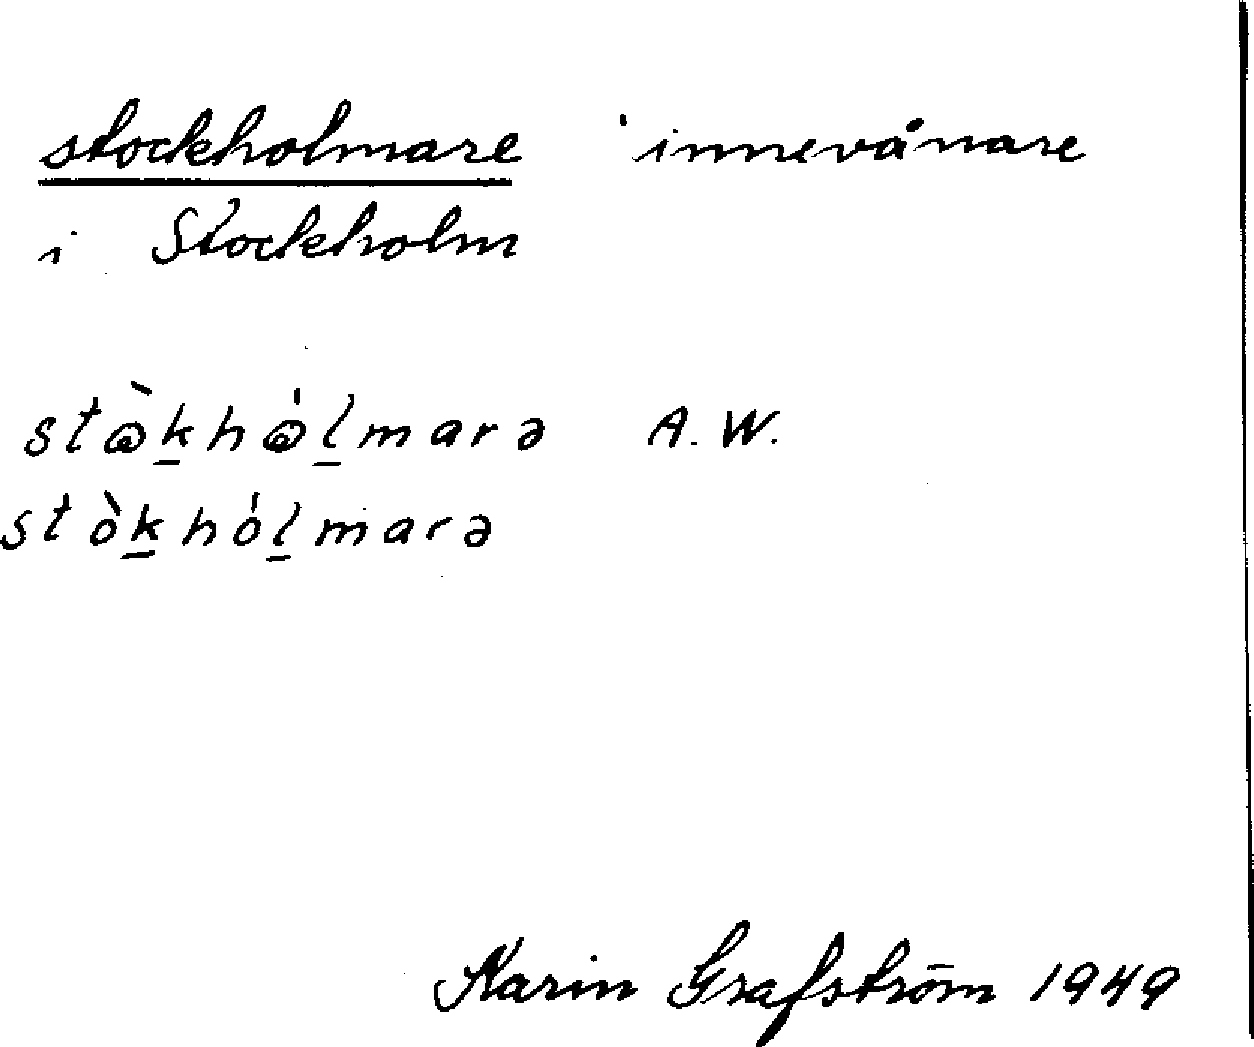 stockholmare 'innevånare
i Stockholm
stꭃ̀ḵhꭃ́ḻmarə A.W.
stòḵhóḻmarə
Karin Grafström 1949